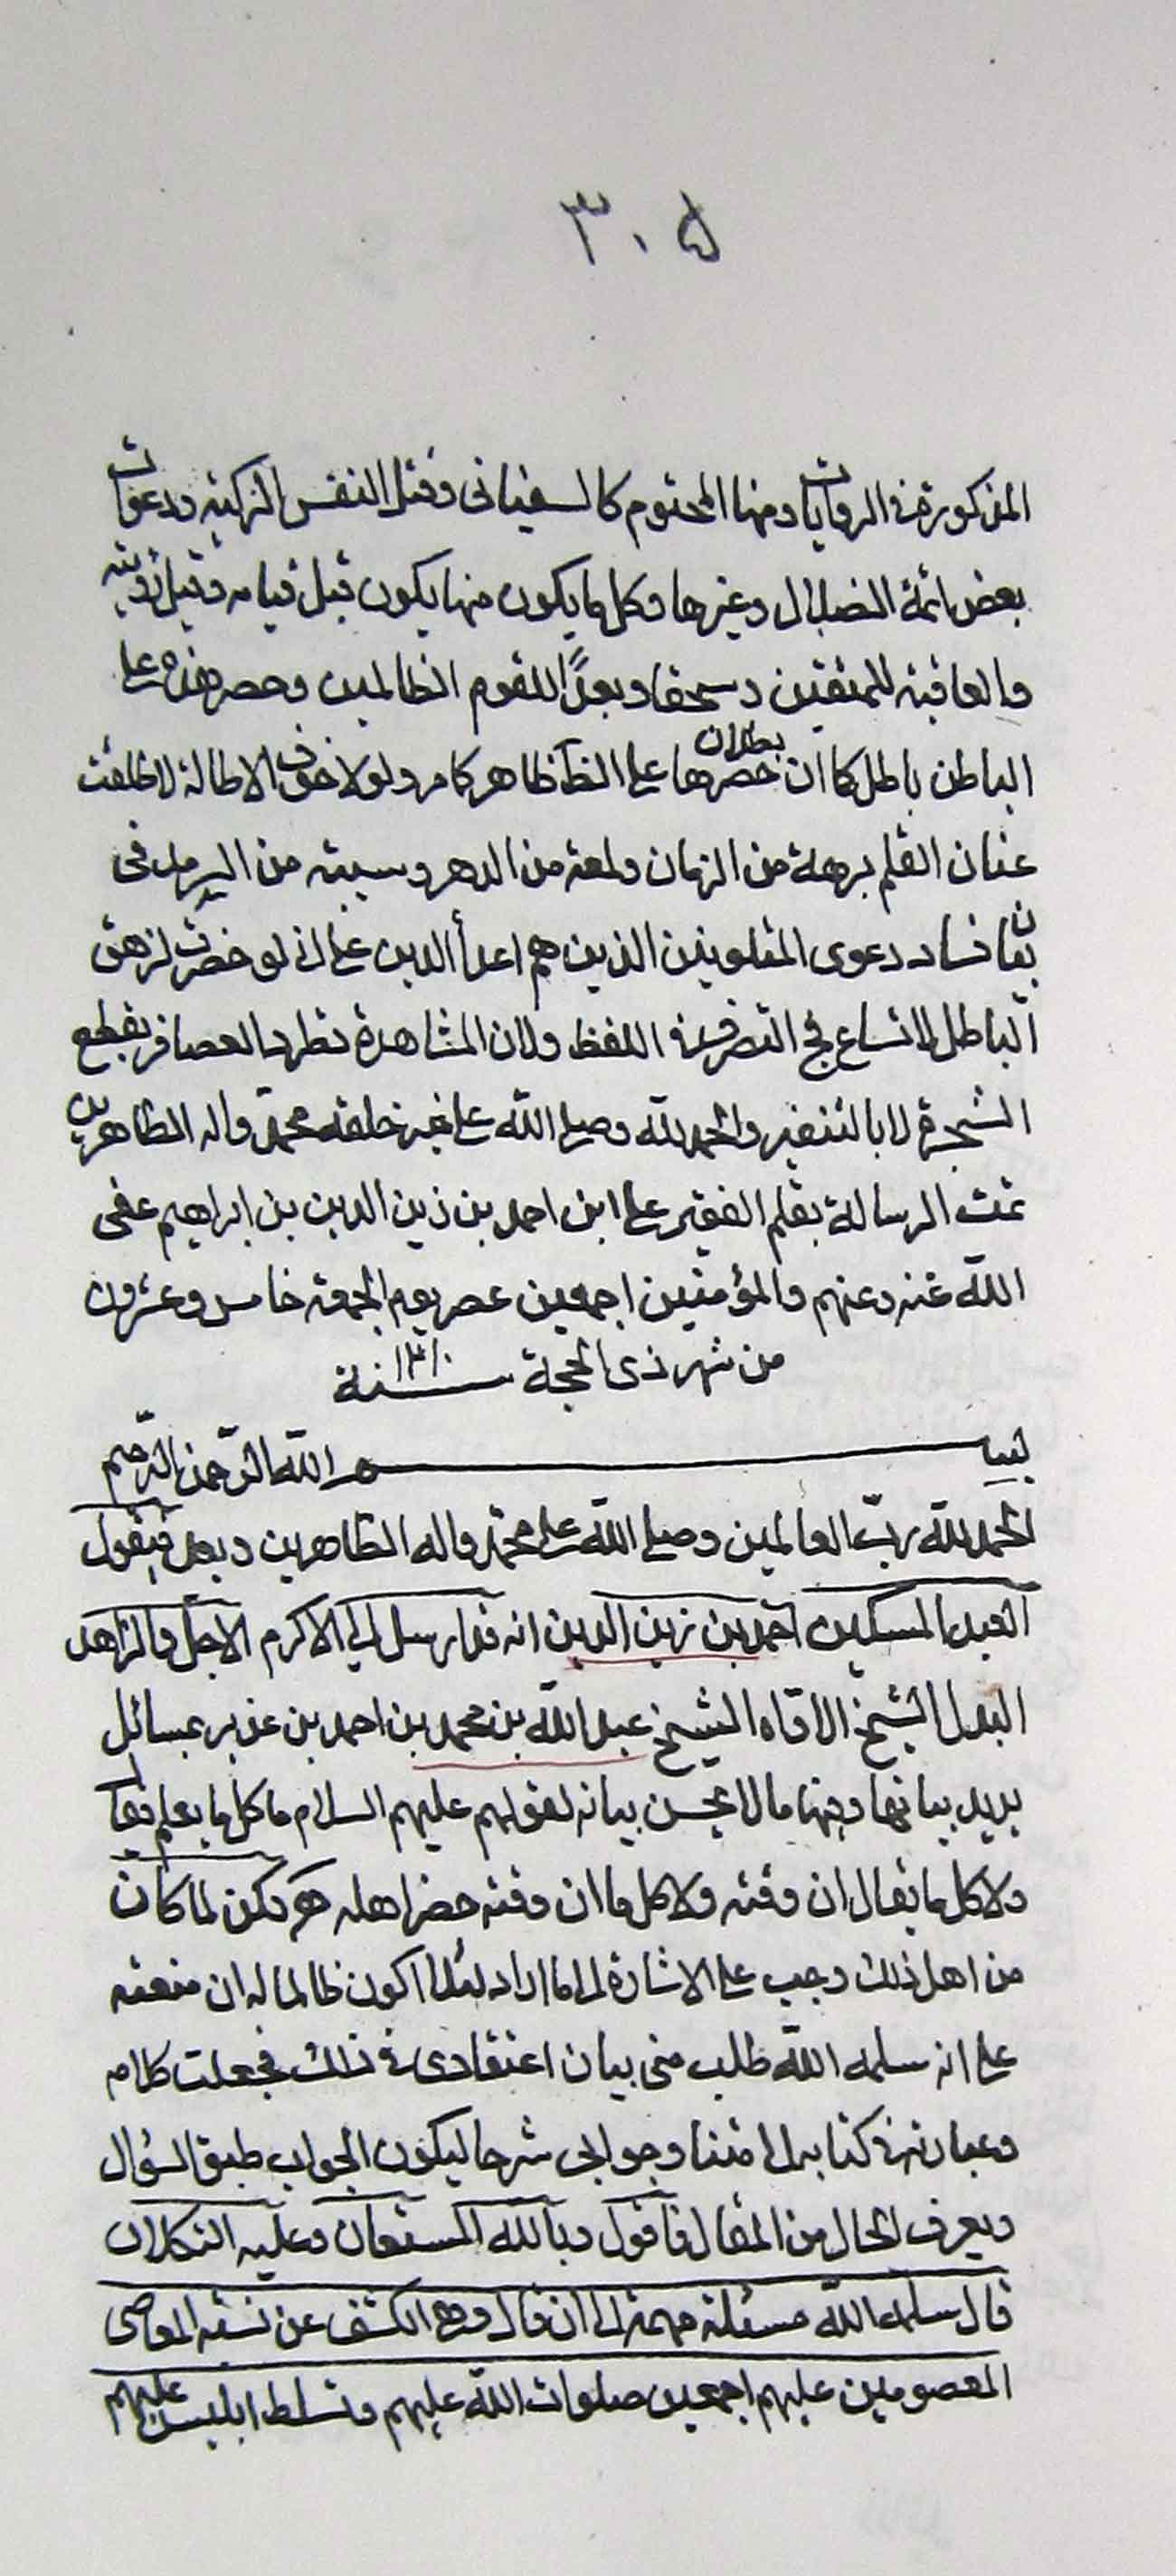 ٣٠۵
المذكورة في الروايات ومنها المحتوم كالسفياني وقتل النفس الزكية ودعوات
بعض ائمة الضلال وغيرها وكل ما يكون منها يكون قبل قيامه وقبل
والعاقبة للمتقين وسحقا وبعدًا للقوم الظالمين وحصر هذه على
الباطن باطل كما ان بطلان حصرها على الظاهر ظاهر كما مر ولولا خوف الاطالة لاطلقت
عنان القلم برهة من الزمان ولمعة من الدهر وسبتة من في
بيان فساد دعوى الذين هم اعدأ الدين على انه لو لزهق
الباطل لاتساع التصرف في اللفظ ولان المشاهدة تطرد العصافر بقطع
الشجرة لا بالتنفير والحمد لله وصلى الله على خير خلقه محمد واله الطاهرين
تمت الرسالة بقلم الفقير على ابن احمد بن زين الدين بن ابراهيم عفى
الله عنه وعنهم والمؤمنين اجمعين عصر يوم الجمعة خامس وعشرون
من شهر ذى الحجة سنة
بسم الله الرّحمن الرّحيم
الحمد لله ربّ العالمين وصلى الله على محمّد واله الطاهرين وبعد فيقول
العبد المسكين احمد بن زين الدين انه قد ارسل الي الاكرم الاجل والزاهد
البدل الشيخ الاقاه الشيخ عبد الله بن محمد بن احمد بن بمسائل
يريد بيانها ومنها ما لا يحسن بيانه لقولهم عليهم السلام ما كل ما يعلم يقال
ولا كل ما يقال ان وقته ولا كل ما ان وقته حضر اهله هو ولكن لما كان
من اهل ذلك وجب على الاشارة الى ما اراد لئلا اكون ظالما له ان منعته
على انه سلمه الله طلب منى بيان اعتقادى في ذلك فجعلت كلامه
وعبارته في كتابه متنا وجوابى شرحا ليكون الجواب طبق السؤال
ويعرف الحال من المقال فاقول وبالله المستعان وعليه التكلان
قال سلمه الله مسئلة مهمة الى ان قال وهو الكشف عن نسبة المعاصى
المعصومين عليهم اجمعين صلوات الله عليهم وتسلط ابليس عليهم